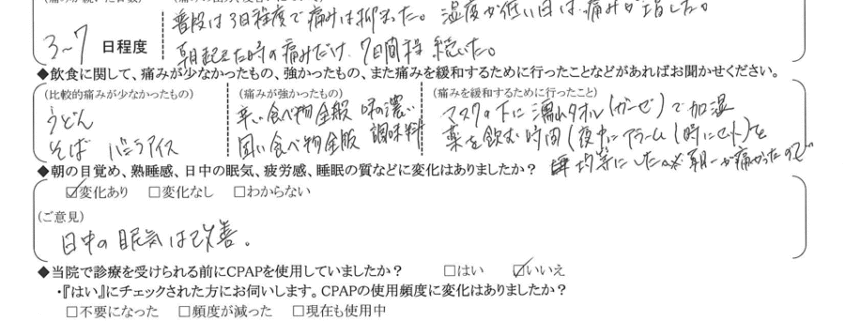 普段は3日程度で痛みは抑えた。湿度が低い日は痛みが増した。
3~7 日程度
朝起きた時の痛みだけ7日間程続いた。
◆飲食に関して、痛みが少なかったもの、強かったもの、また痛みを緩和するために行ったことなどがあればお聞かせください。
(比較的痛みが少なかったもの) (痛みが強かったもの) (痛みを緩和するために行ったこと)
うどん 辛い食べ物全般 味の濃い マスクの下に濡れタオル(ガーゼ)で加湿
そば バニラアイス 固い食べ物全般 調味料 薬を飲む時間(夜中にアラーム1時にセット)を
均等にした ※朝一が痛かったので
◆朝の目覚め、熟睡感、日中の眠気、疲労感、睡眠の質などに変化はありましたか?
☑変化あり □変化なし □わからない
(ご意見)
日中の眠気は改善。
◆当院で診療を受けられる前にCPAPを使用していましたか? □はい ☑いいえ
・『はい』にチェックされた方にお伺いします。CPAPの使用頻度に変化はありましたか?
□不要になった □頻度が減った □現在も使用中